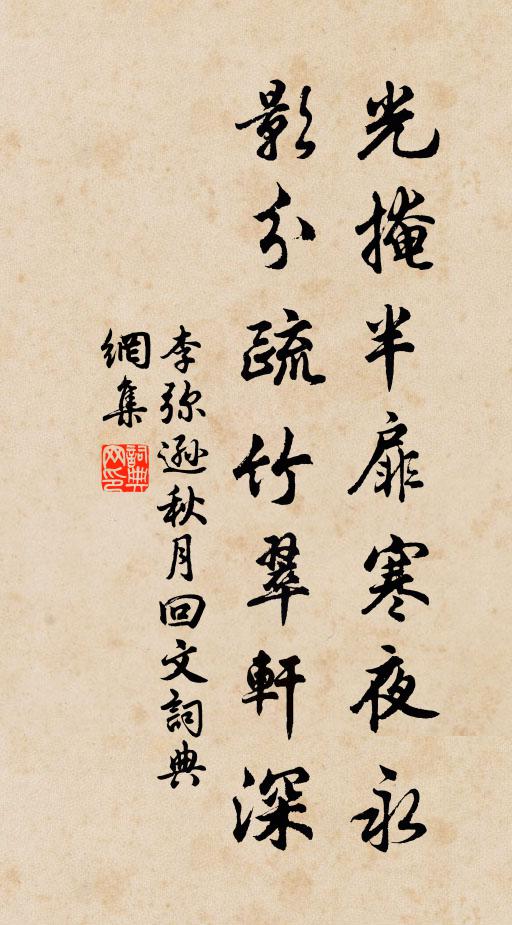 光掩半扉寒夜永
影分疏竹翠軒深
李弥遜秋月回文詞典
網集
詞典网印